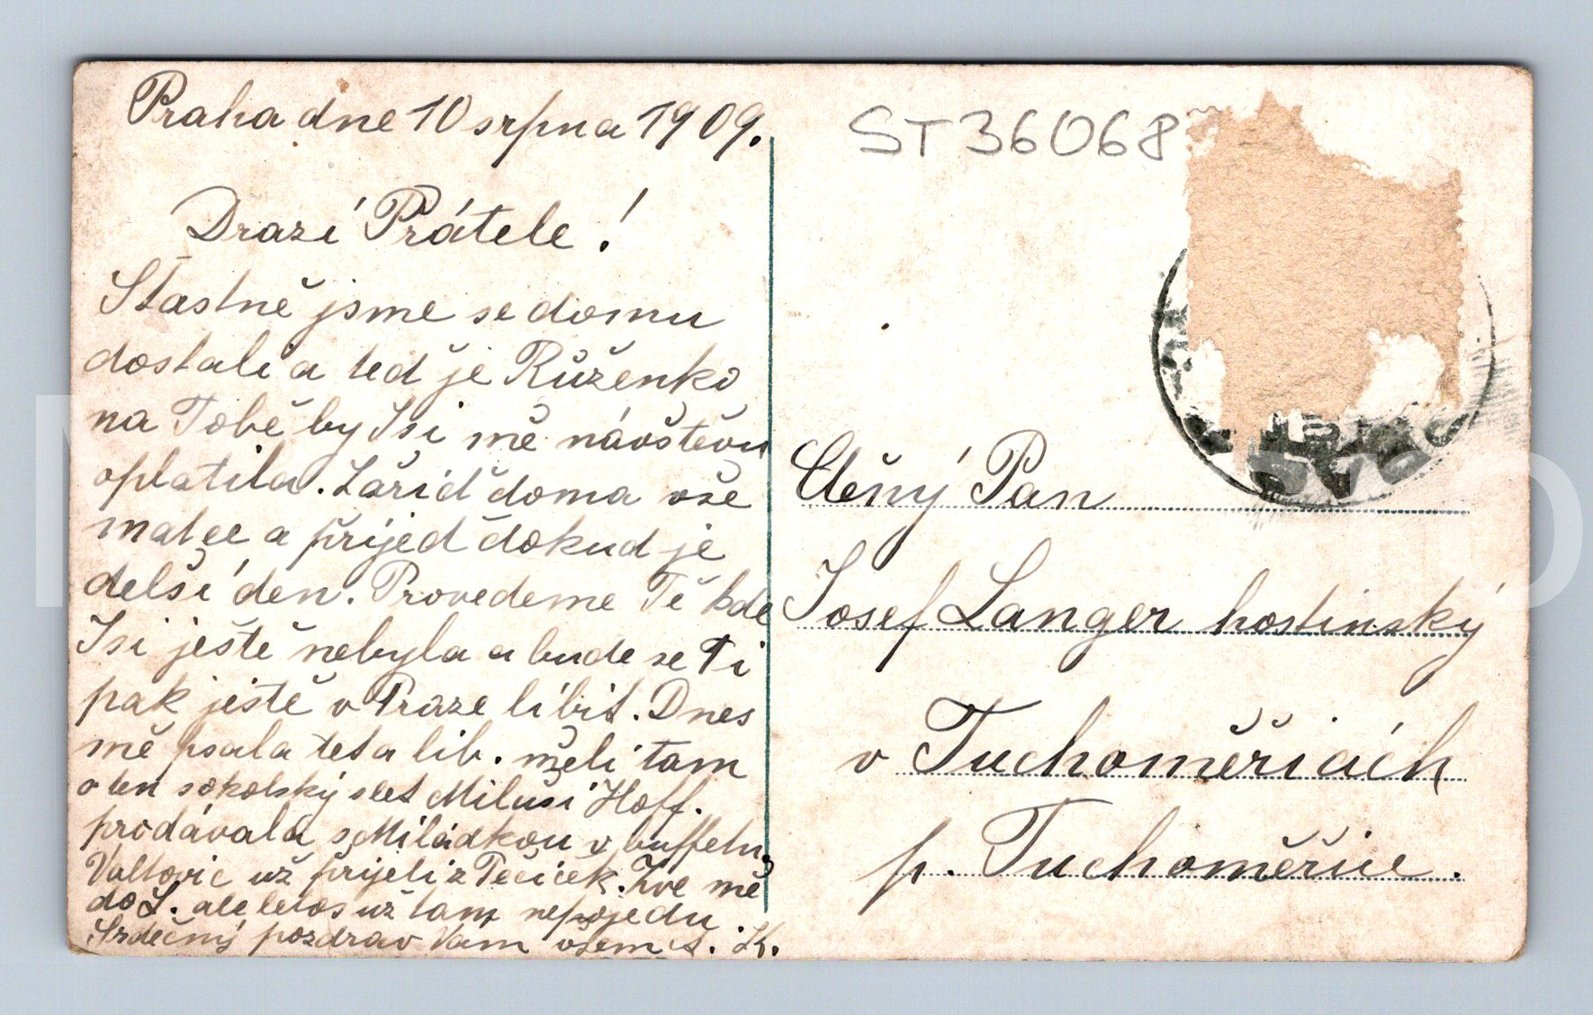 Praha dne 10 srpna 1909.
Drazí Přátelé!
Šťastně jsme se domu
dostali a teď je Růženko
na Tobě by Jsi mě návštěvu
oplatila. Zařiď doma vše
matce a přijeď dokud je
delší den. Provedeme Tě kde
Jsi ještě nebyla a bude se Ti
pak ještě v Praze líbit. Dnes
mě psala teta lib. měli tam
ten sokolský slet Miluší Hoff.
prodávala s Miládkou v buffetu.
už přijeli z Teciček. Zve mě
do L. ale letos už tam nepojedu
Srdečný pozdrav Vám všem
ST36068
Ctěný Pan
Josef Langer hostinský
v Tuchoměřicích
p. Tuchoměřice.